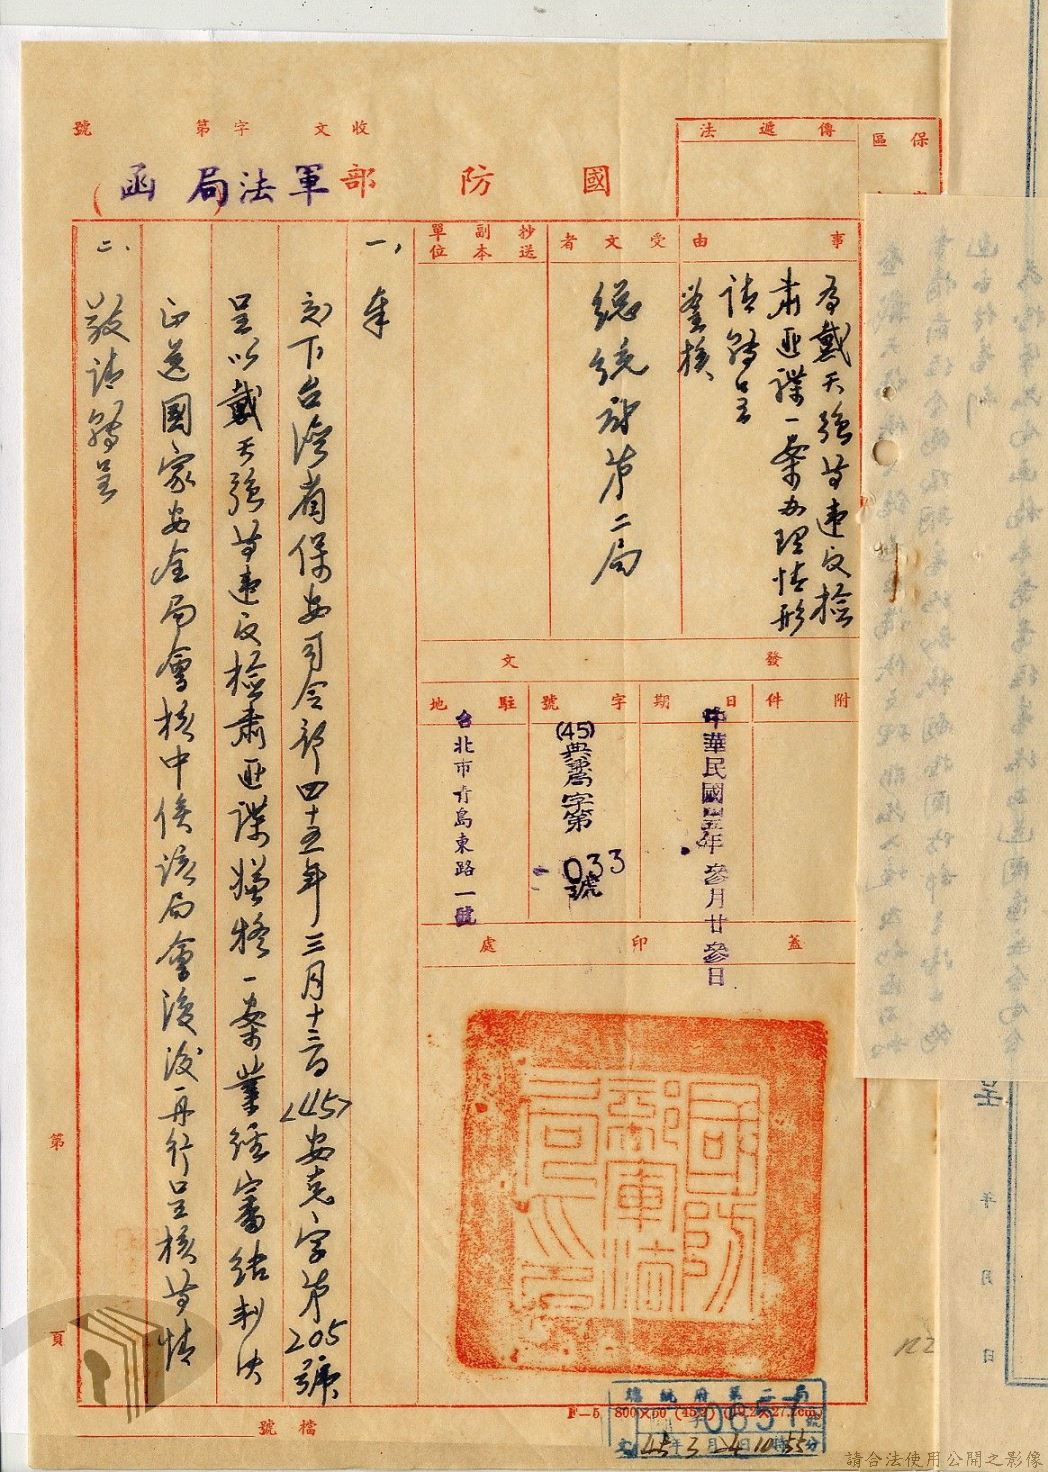 收文　字第　號
國防部軍法局函
保區
傳遞法
事由
為戴天強等違反檢
肅匪諜一案辦理情形
請轉呈
鑒核
受文者
總統府第二局
抄送副本單位
發文
附件
日期
中華民國四十五年叁月廿叁日
字號
(45)典審字第
033號
駐地
台北市青島東路一號
蓋印處
國防部軍法局之印
一、
奉
交下台灣省保安司令部四十五年三月十三日<45>安克字第205號
呈以戴天強等違反檢肅匪諜嫌疑一案業經審結判決
正送國家安全局會核中俟該局會復後再行呈核等情
二、
敬請轉呈
第　頁
檔號
總統府第二局
0657號
文 45年3月24日10時55分
請合法使用公開之影像